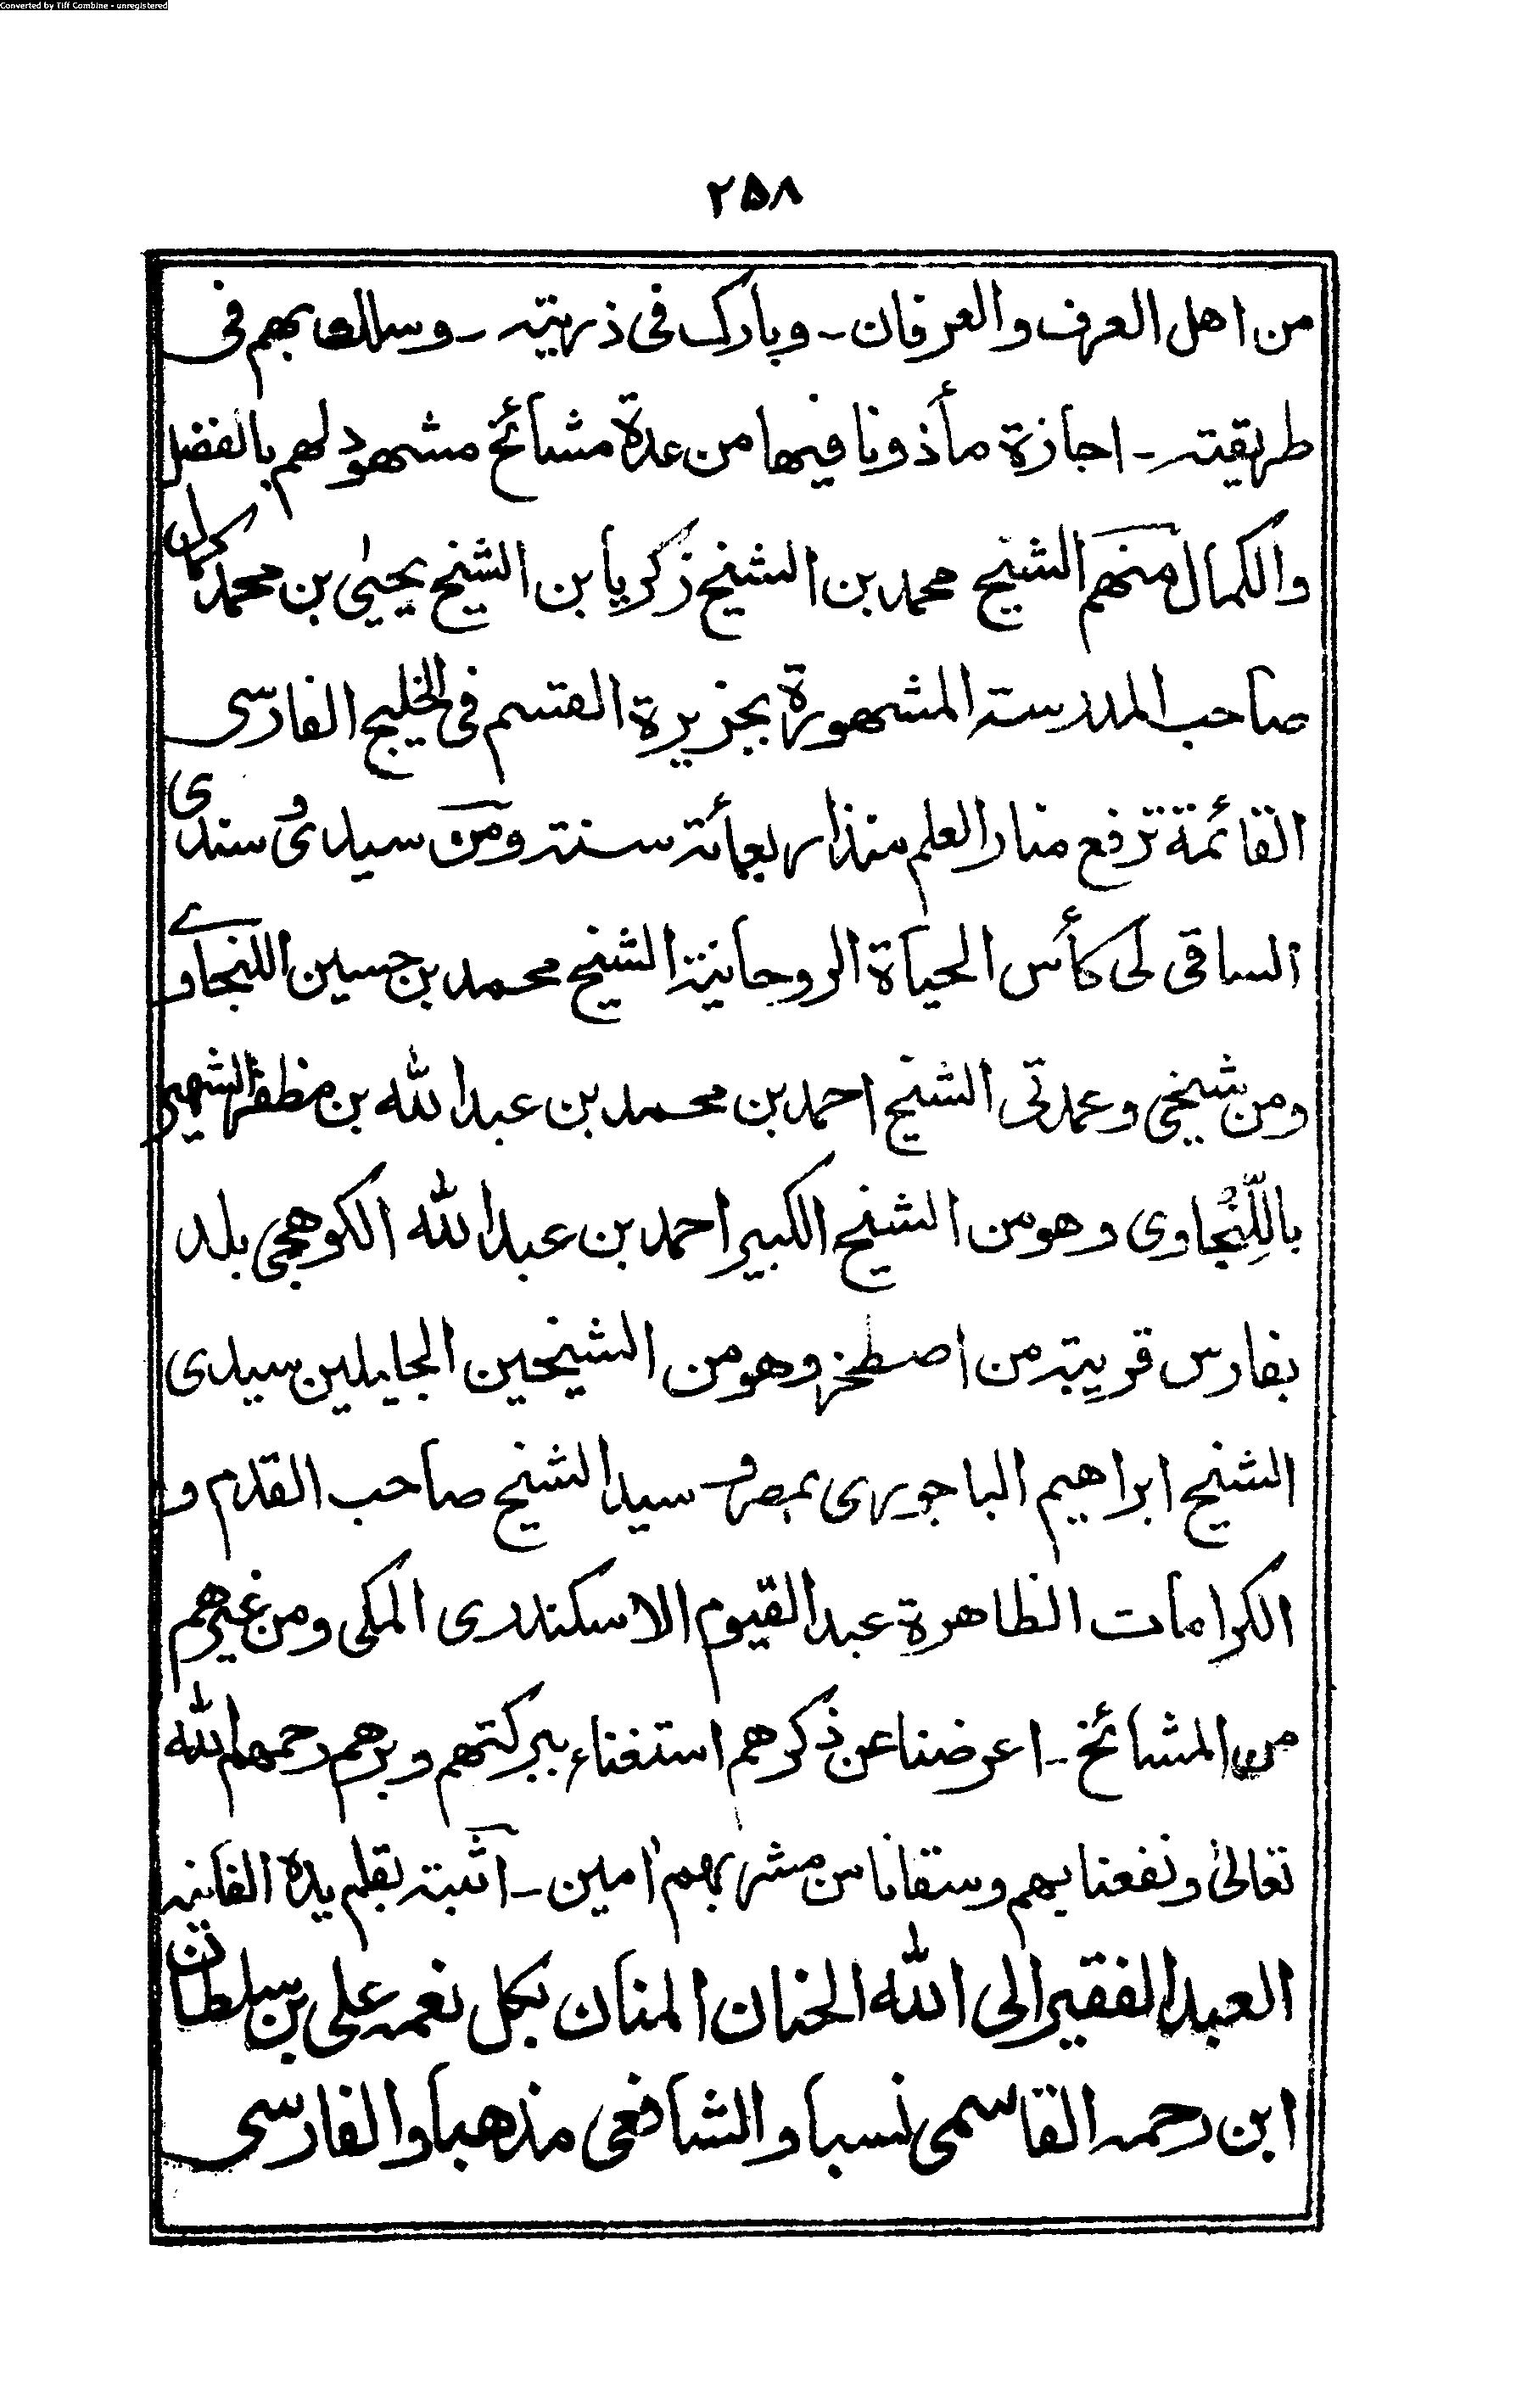 Converted by Tiff Combine - unregistered
۲۵۸
من اهل العرف والعرفان ـ وبارك فى ذريته ـ وسلك بهم فى
طريقته ـ اجازة مأذونا فيها من عدة مشائخ مشهود لهم بالفضل
والكمال منهم الشيخ محمد بن الشيخ زكريا بن الشيخ يحيىٰ بن محمد كمال
صاحب المدرسة المشهورة بجزيرة القسم فى الخليج الفارسى
القائمة ترفع منار العلم منذ اربعمائة سنة ومن سيدى و سندى
الساقى لى كأس الحياة الروحانية الشيخ محمد بن حسين اللنجاوے
ومن شيخى وعمدتى الشيخ احمد بن محمد بن عبد الله بن مظفر الشهير
باللِّنْجاوى وهو من الشيخ الكبير احمد بن عبد الله الكوهجى بلد
بفارس قريبة من اصطخر وهو من الشيخين الجليلين سيدى
الشيخ ابراهيم الباجورى بمصر و سيد الشيخ صاحب القدم و
الكرامات الظاهرة عبد القيوم الاسكندرى المكى ومن غيرهم
من المشائخ ـ اعرضنا عن ذكرهم استغناء ببركتهم وبرهم رحمهم الله
تعالىٰ ونفعنا بهم وسقانا من مشربهم اٰمين ـ اثبته بقلم يده الفانية
العبد الفقير الى الله الحنان المنان بكل نعمه على بن سلطان
ابن رحمه القاسمى نسبا والشافعى مذهبا والفارسى